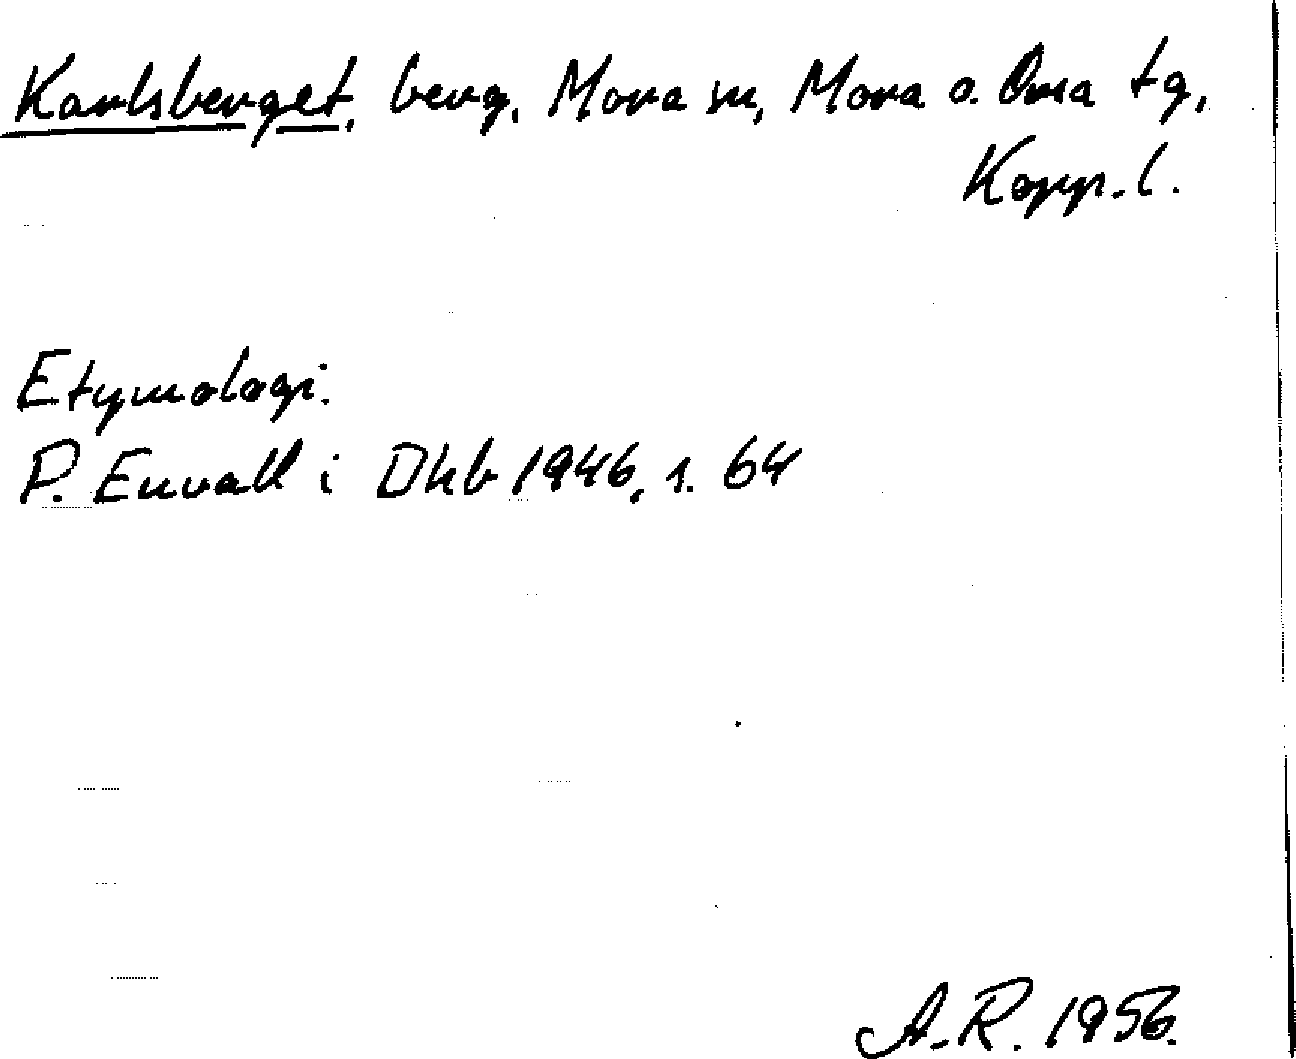 Karlsberget, berg, Mora sn, Mora o. Orsa tg,
Kopp. l.
Etymologi.
P. Envall i Dhb 1946, s. 64
A.R. 1956.